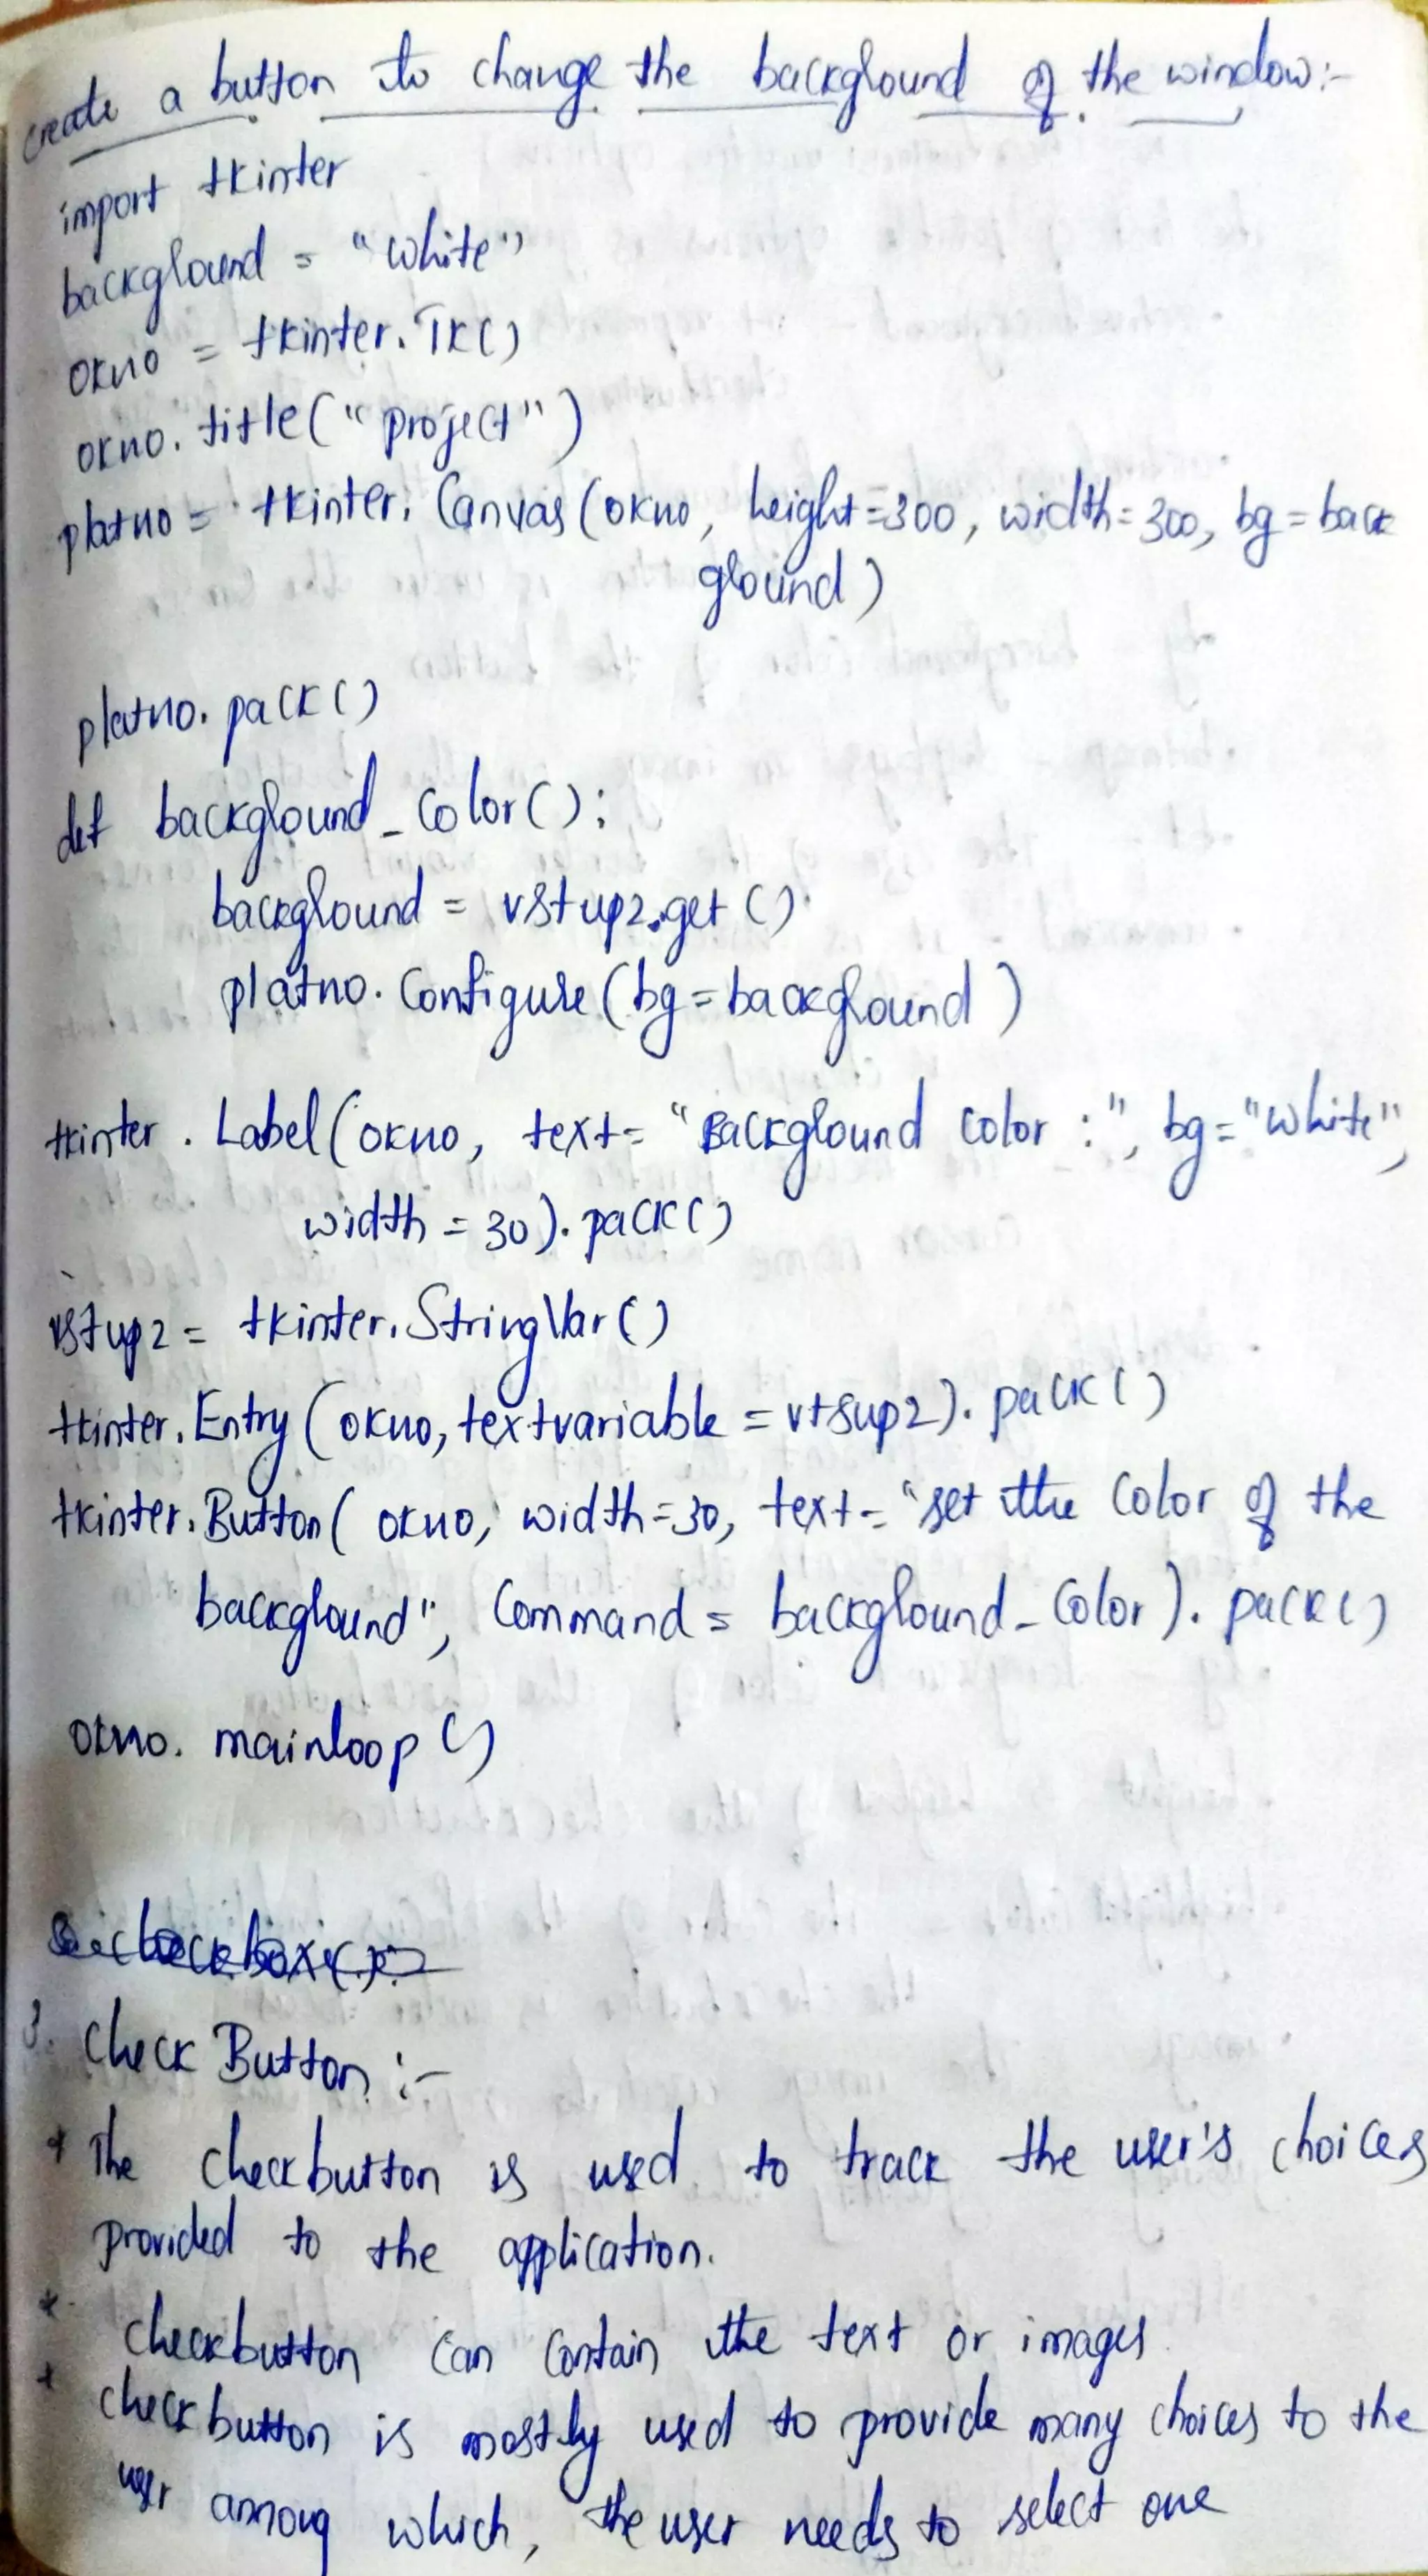 create a button to change the background of the window:-
import tkinter
background = "white"
okno = tkinter.Tk()
okno.title("project")
platno = tkinter.Canvas(okno, height=300, width=300, bg=back
ground)
platno.pack()
def background_color():
background = vstup2.get()
platno.configure(bg=background)
tkinter.Label(okno, text="Background color :", bg="white",
width=30).pack()
vstup2 = tkinter.StringVar()
tkinter.Entry(okno, textvariable = vtsup2).pack()
tkinter.Button(okno, width=30, text="set the color of the
background", Command = background_color).pack()
okno.mainloop()
3. Check Button :-
* The checkbutton is used to track the user's choices
provided to the application.
* checkbutton can contain the text or images.
* checkbutton is mostly used to provide many choices to the
user among which, the user needs to select one